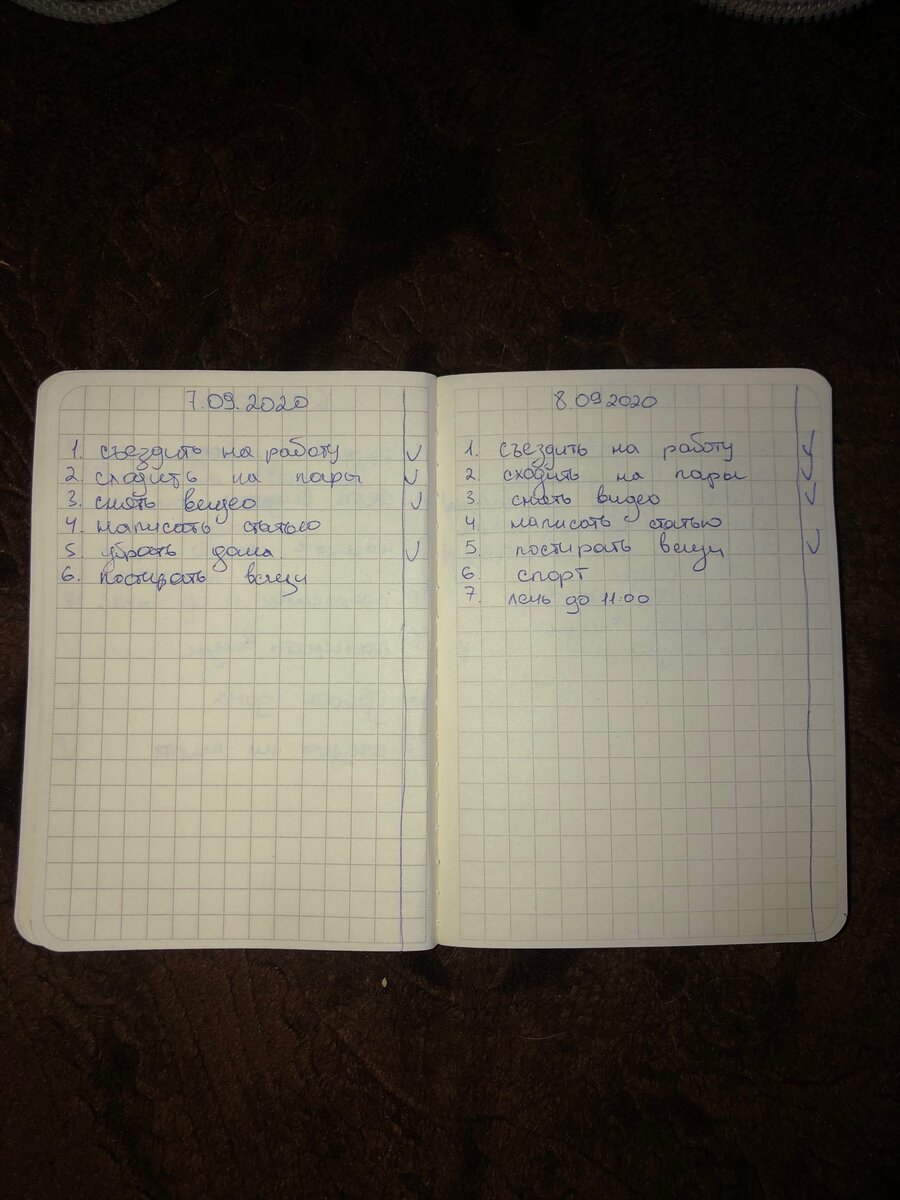 7.09.2020
1. съездить на работу ✓
2. сходить на пары ✓
3. снять видео ✓
4. написать статью
5. убрать дома. ✓
6. постирать вещи
8.09.2020
1. съездить на работу ✓
2. сходить на пары ✓
3. снять видео ✓
4. написать статью
5. постирать вещи ✓
6. спорт
7. лечь до 11:00